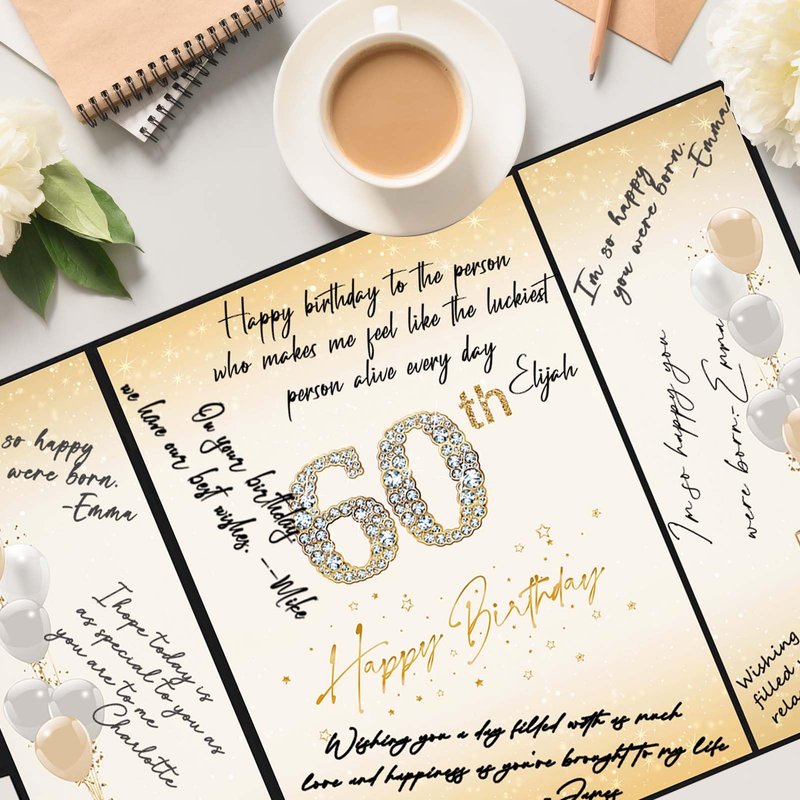 so happy
were born.
-Emma
I hope today is
as special to you as
you are to me
Charlotte
Happy birthday to the person
who makes me feel like the luckiest
person alive every day
Elijah
On your birthday,
we have our best wishes. --Mike
60th
Happy Birthday
Wishing you a day filled with as much
love and happiness as you're brought to my life
- James
I'm so happy
you were born.
-Emma
I'm so happy you
were born- Emma
Wishing
filled
rela